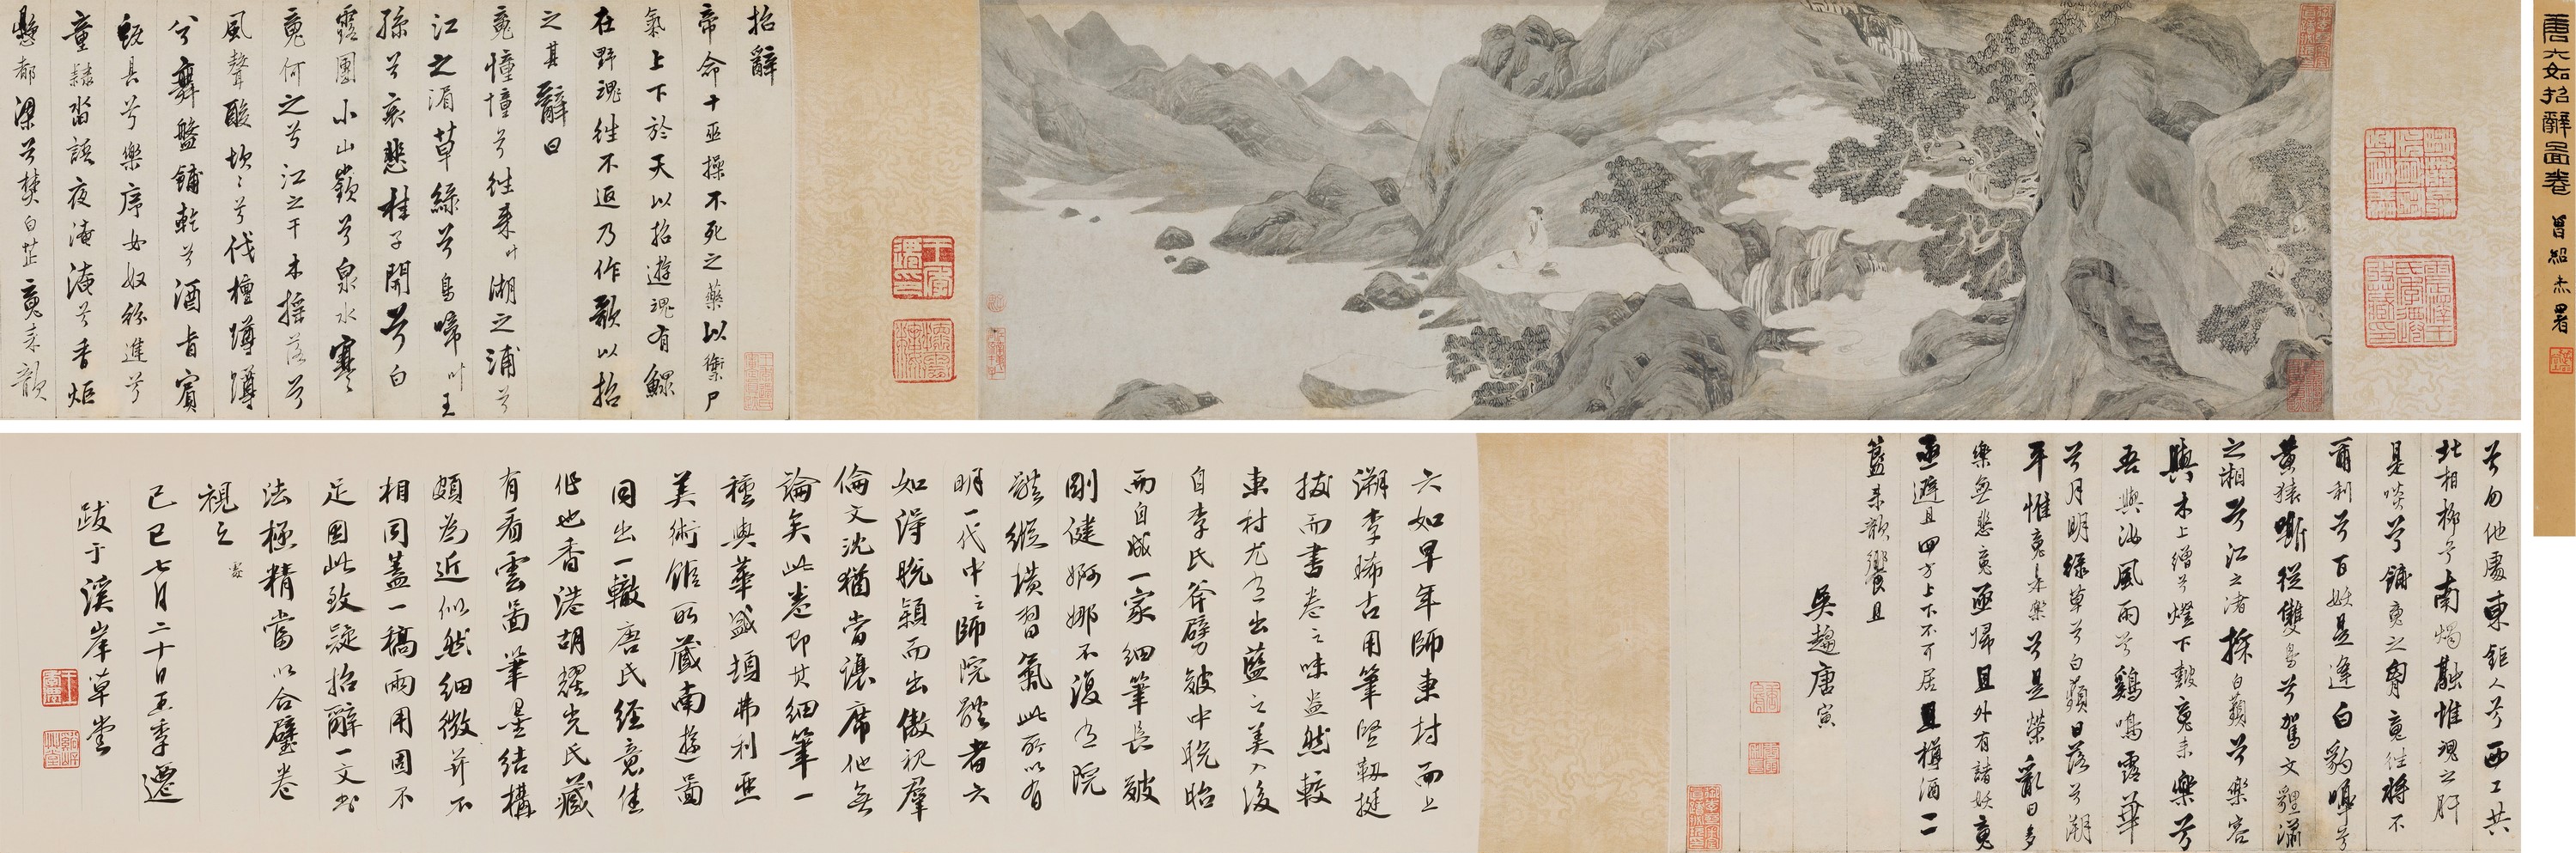 唐六如招辭圖卷
曾紹杰署
招辭
帝命十巫操不死之藥以禦尸
氣上下於天以招遊魂有鰥
在野魂往不返乃作歌以招
之其辭曰
䰟憧憧兮往來叶湖之浦兮
江之湄草綠兮鳥啼叶王
孫兮哀悲桂子開兮白
露團小山嶺兮泉水寒
䰟何之兮江之干木搖落兮
風聲酸坎坎兮伐檀蹲蹲
兮舞盤鋪乾兮酒旨賓
既具兮樂序女奴紛進兮
童隸啙語夜淹淹兮香炬
懸都梁兮焚白芷䰟來歆
兮勿他處東鉅人兮西工共
北相柳兮南燭融惟魂之肝
是啖兮鋪䰟之胷䰟往將不
爾利兮百妖是逢白豹嘷兮
黃猿嘶從雙鳥兮駕文貍瀟
之湘兮江之渚採白蘋兮樂容
與木上繒兮燈下鼓䰟來樂兮
吾與汝風雨兮鷄鳴露華
兮月明綠草兮白蘋日落兮湖
平惟䰟來樂兮是榮亂曰多
樂無悲䰟亟歸且外有諸妖䰟
亟避且四方上下不可居且樽酒二
簋來歆饗且
吳趨唐寅
六如早年師東村而上
溯李晞古用筆堅韌挺
拔而書卷之味盎然較
東村尤有出藍之美入後
自李氏斧劈皴中脫胎
而自成一家細筆長皴
剛健婀娜不復有院
體縱橫習氣此所以有
明一代中之師院體者六
如得脫穎而出傲視羣
倫文沈猶當讓席他無
論矣此卷即其細筆一
種與華盛頓弗利亞
美術館所藏南遊圖
同出一轍唐氏經意佳
作也香港胡耀光氏藏
有看雲圖筆墨結構
頗為近似然細微並不
相同蓋一稿兩用固不
足因此致疑招辭一文書
法極精當以合璧卷
視之
己巳七月二十日王季遷
跋于溪岸草堂